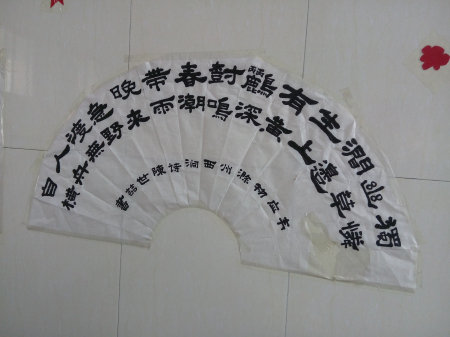 獨憐
幽草
澗邊
生上
有黃
鸝深
樹鳴
春潮
帶雨
晚來
急野
渡無
人舟
自橫
韦应物滁州西涧诗陳世書